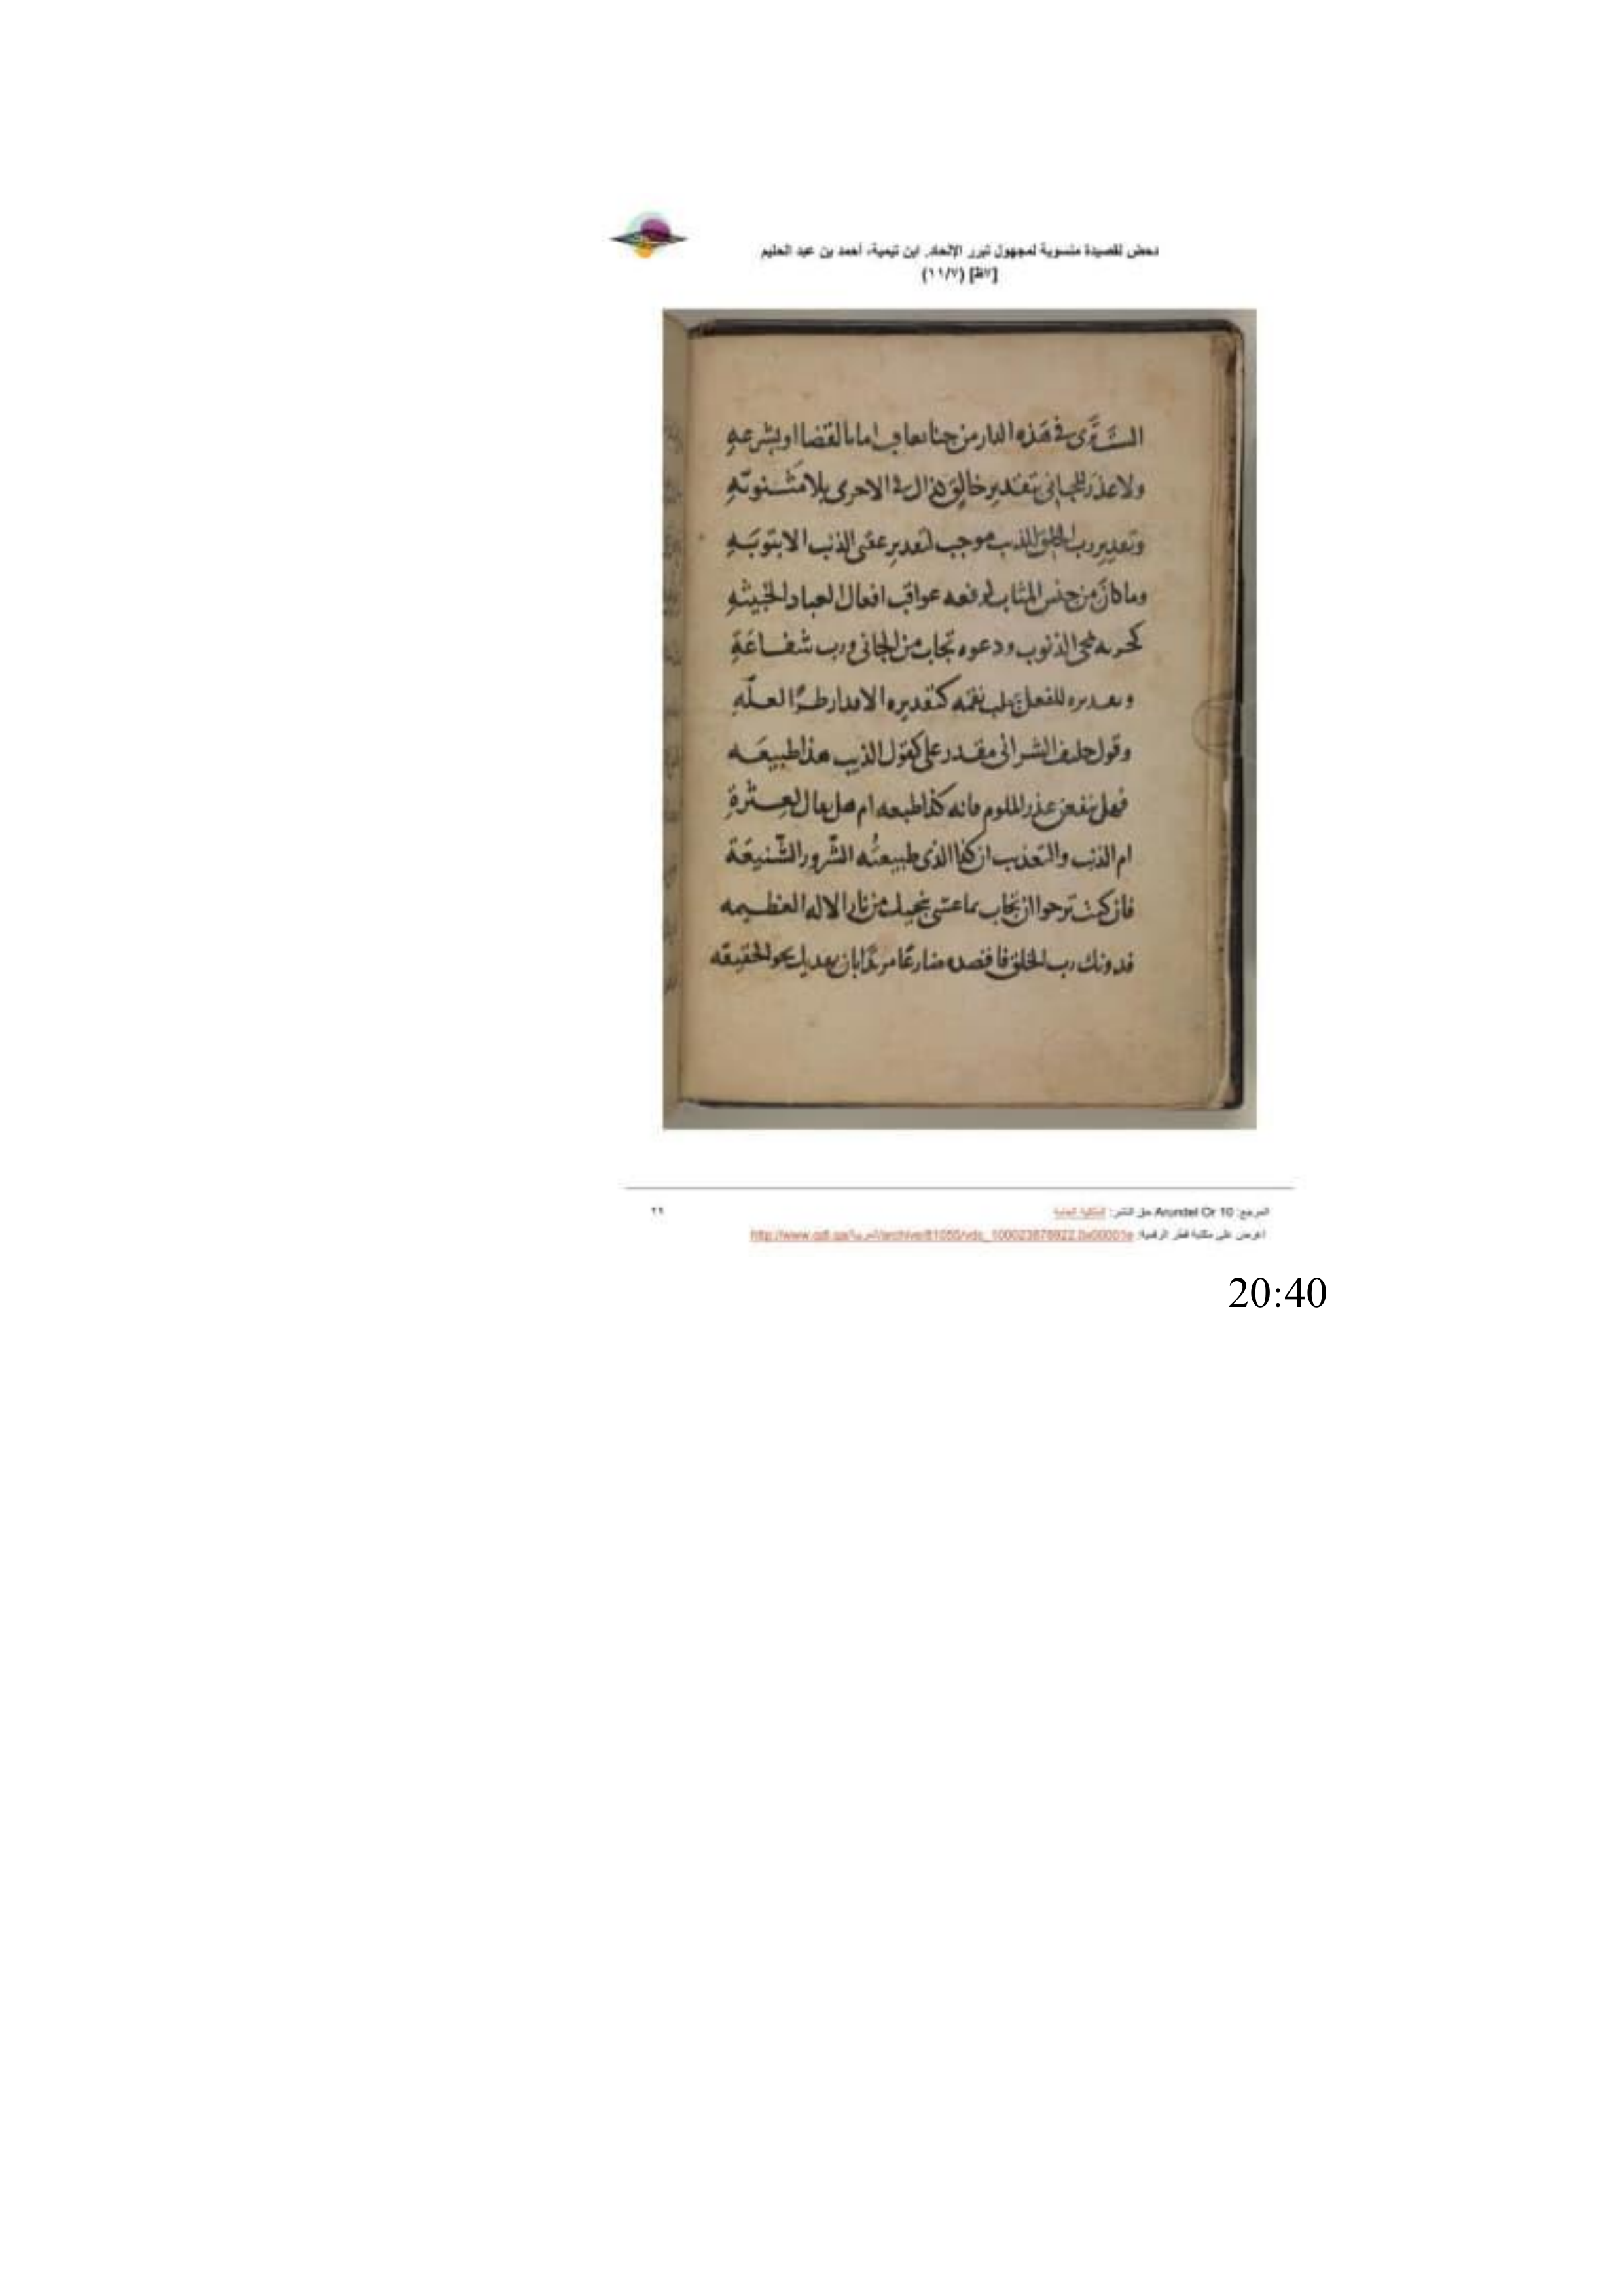 دحض لقصيدة منسوبة لمجهول تبرر الإلحاد. ابن تيمية، أحمد بن عبد الحليم
[٧ظ] (١١/٧)
في هذه الدار من جنا يعاقب اما بالقضا او بشرعه
ولا عذر للجاني بتقدير خالق كذلك في الاخرى بلا مثنويه
وتقدير رب الخلق للذنب موجب لتقدير عقبى الذنب الا بتوبه
وما كان من جنس المتاب لرفعه عواقب افعال العباد الخبيثه
كخير به تمحى الذنوب ودعوه تجاب من الجاني ورب شفاعة
وتقديره للفعل يجلب نقمه كتقديره الاقدار طرا لعله
وقول حليف الشر اني مقدر علي كقول الذيب هذا طبيعه
فهل ينفعن عذر الملوم فانه كذا طبعه ام هل يقال لعثرة
ام الذنب والتعذيب اوكد للذي طبيعته الشرور الشنيعة
فان كنت ترجوا ان تجاب بما عسى ينجيك من نار الاله العظيمه
فدونك رب الخلق فاقصده ضارعا مريدا بان يهديك نحو الحقيقه
٢٩
المرجع: Arundel Or 10 حق النشر: الملكية العامة
اعرض على مكتبة قطر الرقمية:
20:40